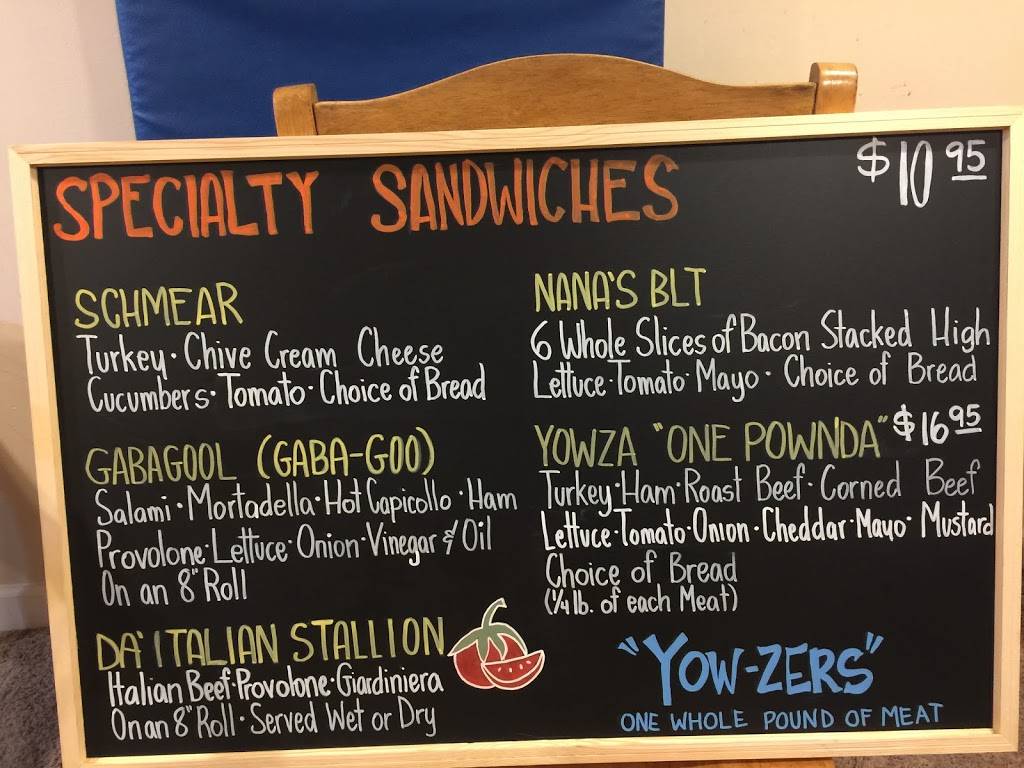 SPECIALTY SANDWICHES $10 95
SCHMEAR
Turkey · Chive Cream Cheese
Cucumbers · Tomato · Choice of Bread
GABAGOOL (GABA-GOO)
Salami · Mortadella · Hot Capicollo · Ham
Provolone · Lettuce · Onion · Vinegar & Oil
On an 8" Roll
DA' ITALIAN STALLION
Italian Beef · Provolone · Giardiniera
On an 8" Roll · Served Wet or Dry
NANA'S BLT
6 Whole Slices of Bacon Stacked High
Lettuce · Tomato · Mayo · Choice of Bread
YOWZA "ONE POWNDA" $16 95
Turkey · Ham · Roast Beef · Corned Beef
Lettuce · Tomato · Onion · Cheddar · Mayo · Mustard
Choice of Bread
(1/4 lb. of each Meat)
"YOW-ZERS"
ONE WHOLE POUND OF MEAT